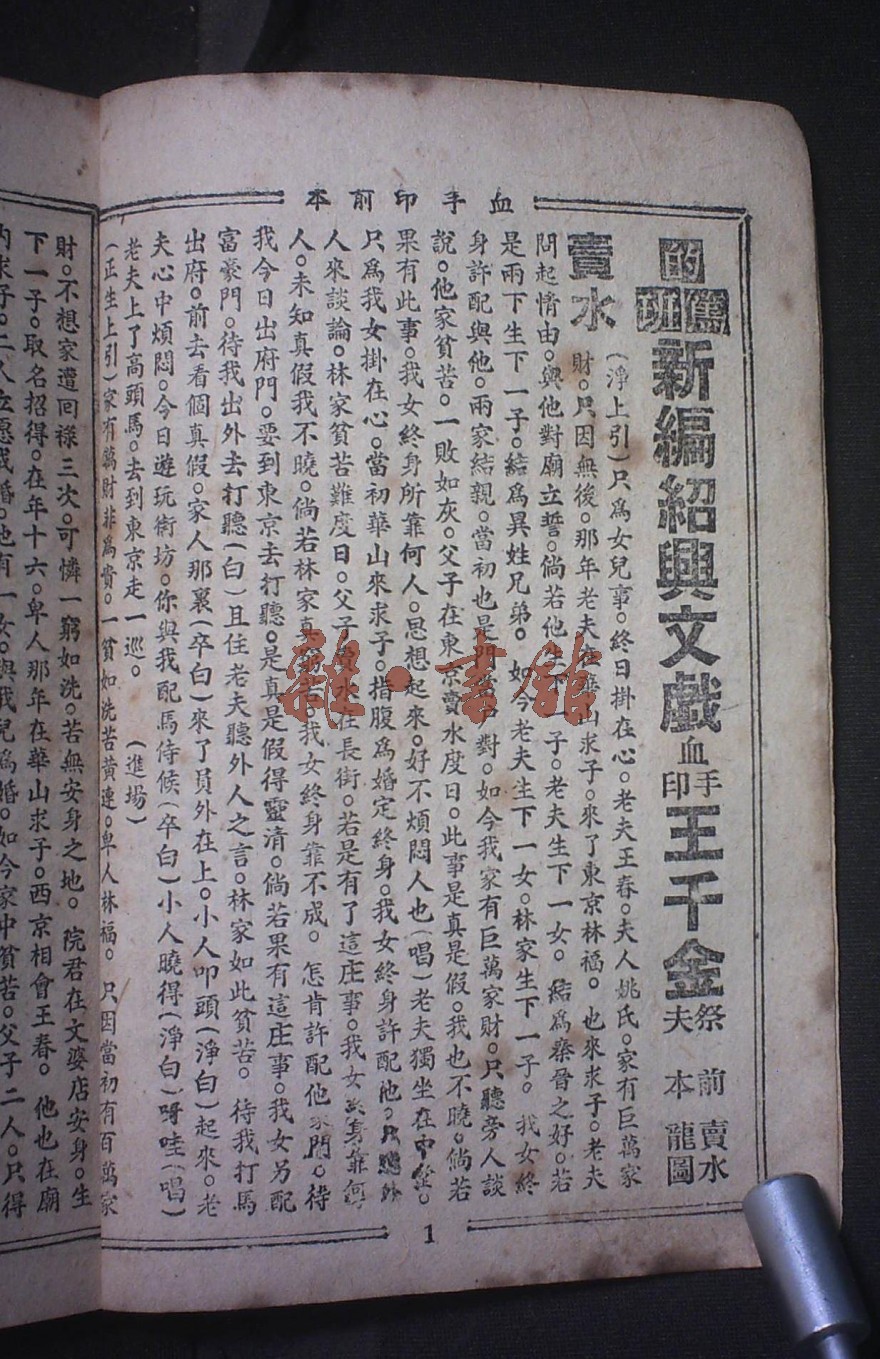 血手印前本
的篤班
新編紹興文戲
血手印
王千金
祭夫
前本
賣水
龍圖
賣水
(淨上引)只爲女兒事。終日掛在心。老夫王春。夫人姚氏。家有巨萬家
財。只因無後。那年老夫在華山求子。來了東京林福。也來求子。老夫
問起情由。與他對廟立誓。倘若他生下一子。老夫生下一女。結爲秦晉之好。若
是兩下生下一子。結爲異姓兄弟。如今老夫生下一女。林家生下一子。我女終
身許配與他。兩家結親。當初也是門當戶對。如今我家有巨萬家財。只聽旁人談
說。他家貧苦。一敗如灰。父子在東京賣水度日。此事是真是假。我也不曉。倘若
果有此事。我女終身所靠何人。思想起來。好不煩悶人也(唱)老夫獨坐在中堂。
只爲我女掛在心。當初華山來求子。指腹爲婚定終身。我女終身許配他。只聽外
人來談論。林家貧苦難度日。父子賣水在長街。若是有了這庄事。我女終身靠何
人。未知真假我不曉。倘若林家真窮苦。我女終身靠不成。怎肯許配他家門。待
我今日出府門。要到東京去打聽。是真是假得靈清。倘若果有這庄事。我女另配
富豪門。待我出外去打聽(白)且住老夫聽外人之言。林家如此貧苦。待我打馬
出府。前去看個真假。家人那裏(卒白)來了員外在上。小人叩頭(淨白)起來。老
夫心中煩悶。今日遊玩街坊。你與我配馬侍候(卒白)小人曉得(淨白)呀哇(唱)
老夫上了高頭馬。去到東京走一巡。(進場)
(正生上引)家有萬財非爲貴。一貧如洗苦黃連。卑人林福。只因當初有百萬家
財。不想家遭回祿三次。可憐一窮如洗。苦無安身之地。院君在文婆店安身。生
下一子。取名招得。在年十六。卑人那年在華山求子。西京相會王春。他也在廟
內求子。二人立愿成婚。他有一女。與我兒爲婚。如今家中貧苦。父子二人。只得
1
雜·書館